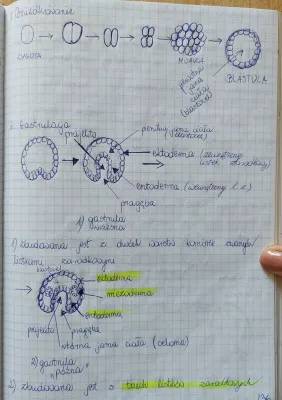 1. Bruzdkowanie
ZYGOTA
MORULA
BLASTULA
pierwotna
jama
ciała
(blastocel)
2. Gastrulacja
prajelito
pierwotna jama ciała
(blastocel)
ektoderma (zewnętrzny
listek zarodkowy)
entoderma (wewnętrzny l. z.)
pragęba
1) gastrula
wczesna
1) zbudowana jest z dwóch warstw komórek zwanych
listkami zarodkowymi
blastocel
ektoderma
mezoderma
entoderma
prajelito pragęba
wtórna jama ciała (celoma)
2) gastrula
"późna"
2) zbudowana jest z trzech listków zarodkowych